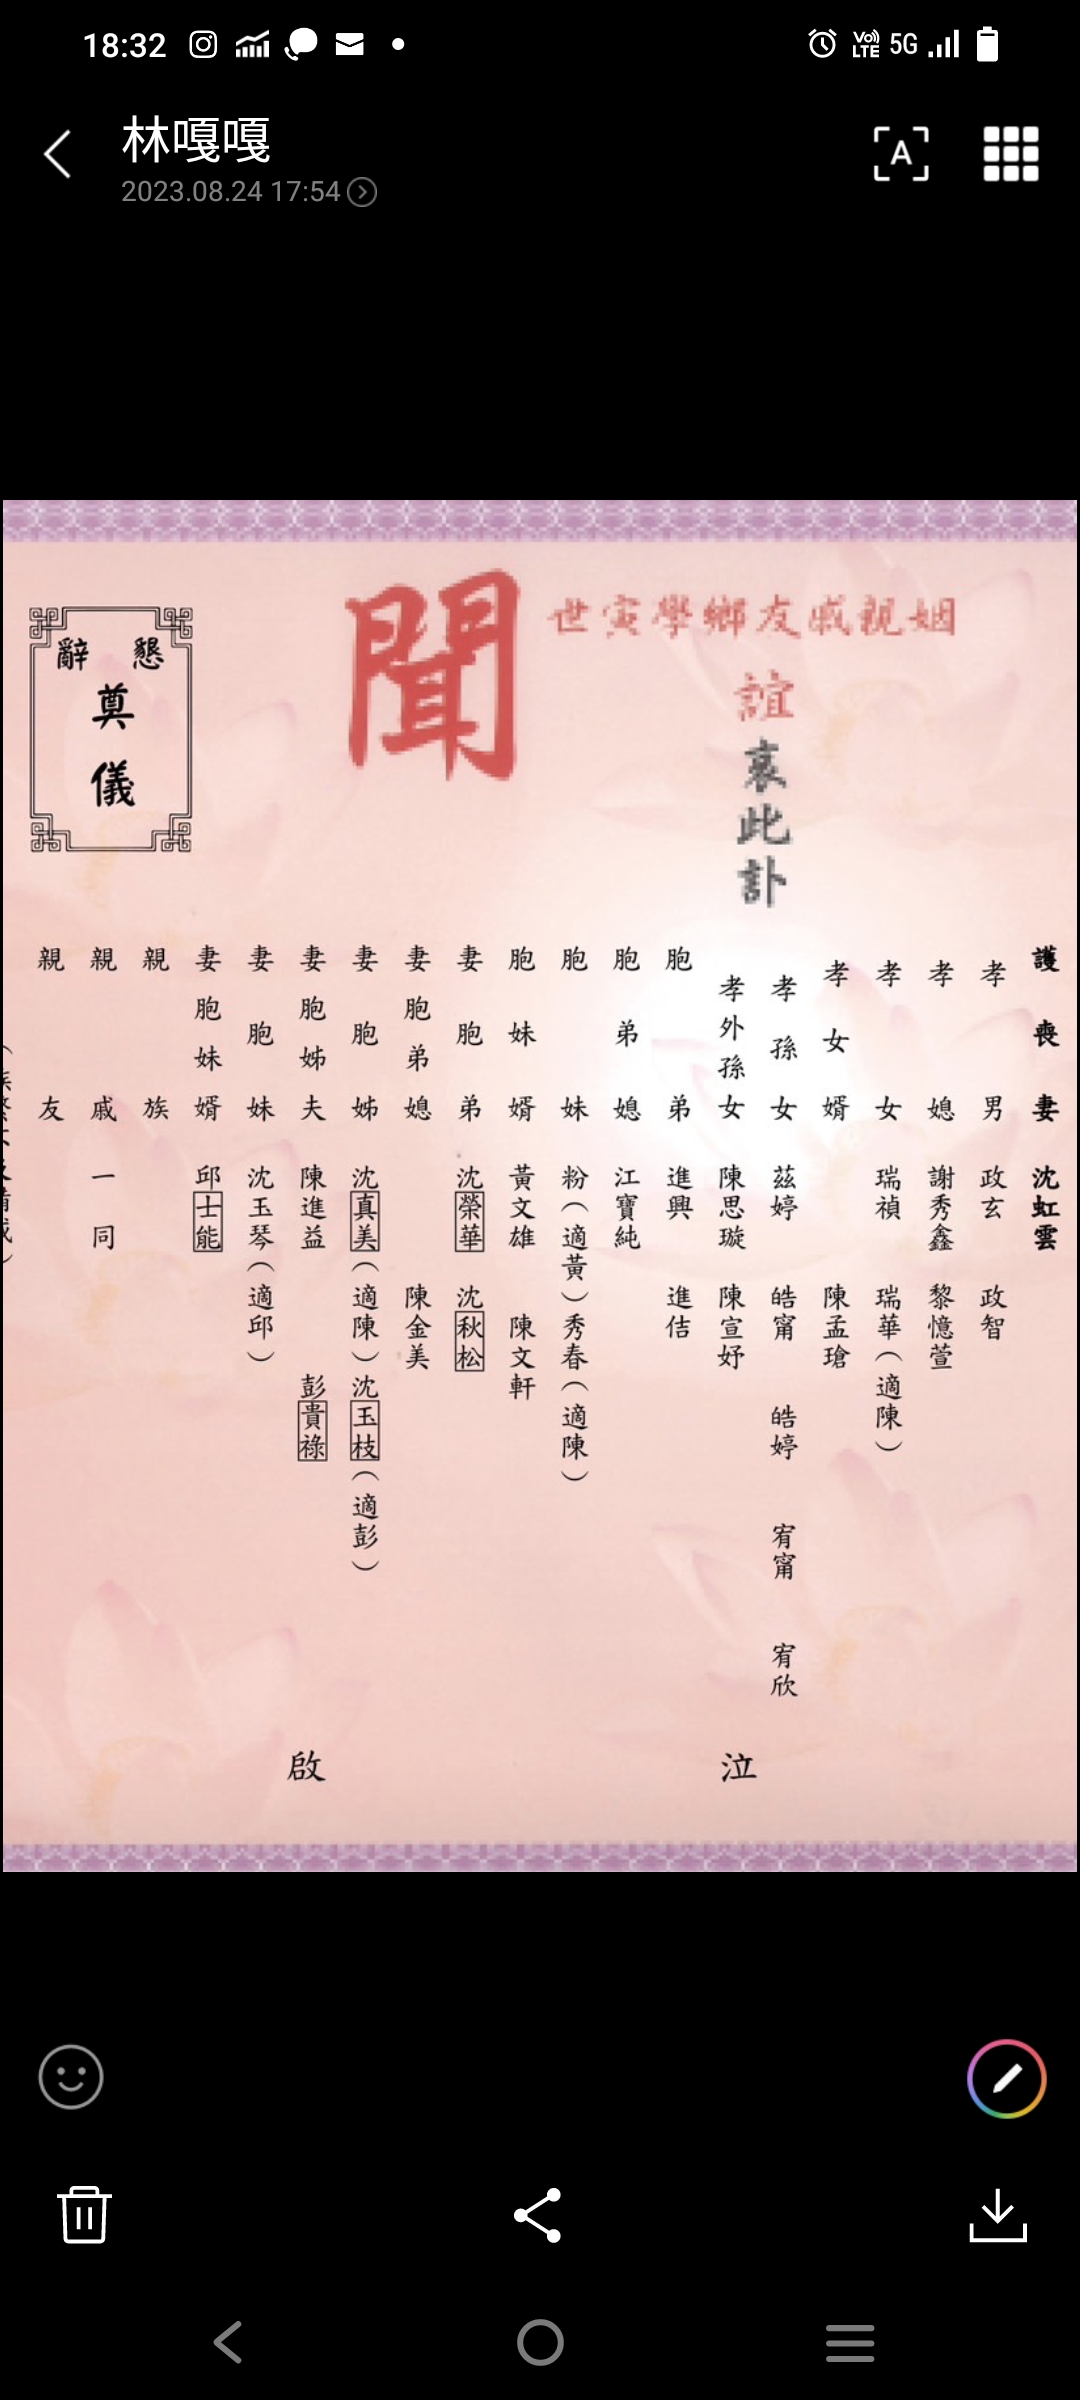 18:32
VoLTE 5G
林嘎嘎
2023.08.24 17:54
A
姻親戚友鄉學寅世
誼哀此訃
聞
懇辭
奠儀
護喪妻 沈虹雲
孝男 政玄 政智
孝媳 謝秀鑫 黎憶萱
孝女 瑞禎 瑞華（適陳）
孝女婿 陳孟瑲
孝孫女 茲婷 皓甯 皓婷 宥甯 宥欣
孝外孫女 陳思璇 陳宣妤
胞弟 進興 進佶
胞弟媳 江寶純
胞妹 粉（適黃）秀春（適陳）
胞妹婿 黃文雄 陳文軒
妻胞弟 沈榮華 沈秋松
妻胞弟媳 陳金美
妻胞姊 沈真美（適陳）沈玉枝（適彭）
妻胞姊夫 陳進益 彭貴祿
妻胞妹 沈玉琴（適邱）
妻胞妹婿 邱士能
親族
親戚 一同
親友
泣啟